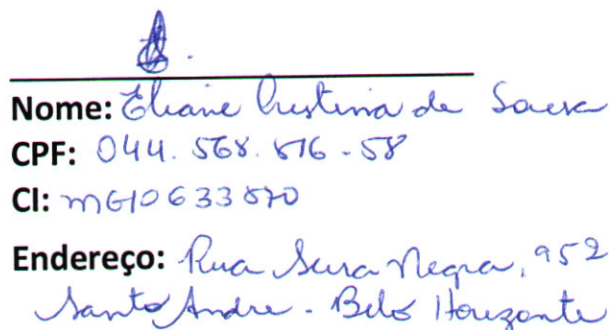 Nome: Eliane Cristina de Sousa
CPF: 044.568.816-58
CI: MG10633870
Endereço: Rua Serra Negra, 952
Santo Andre - Belo Horizonte